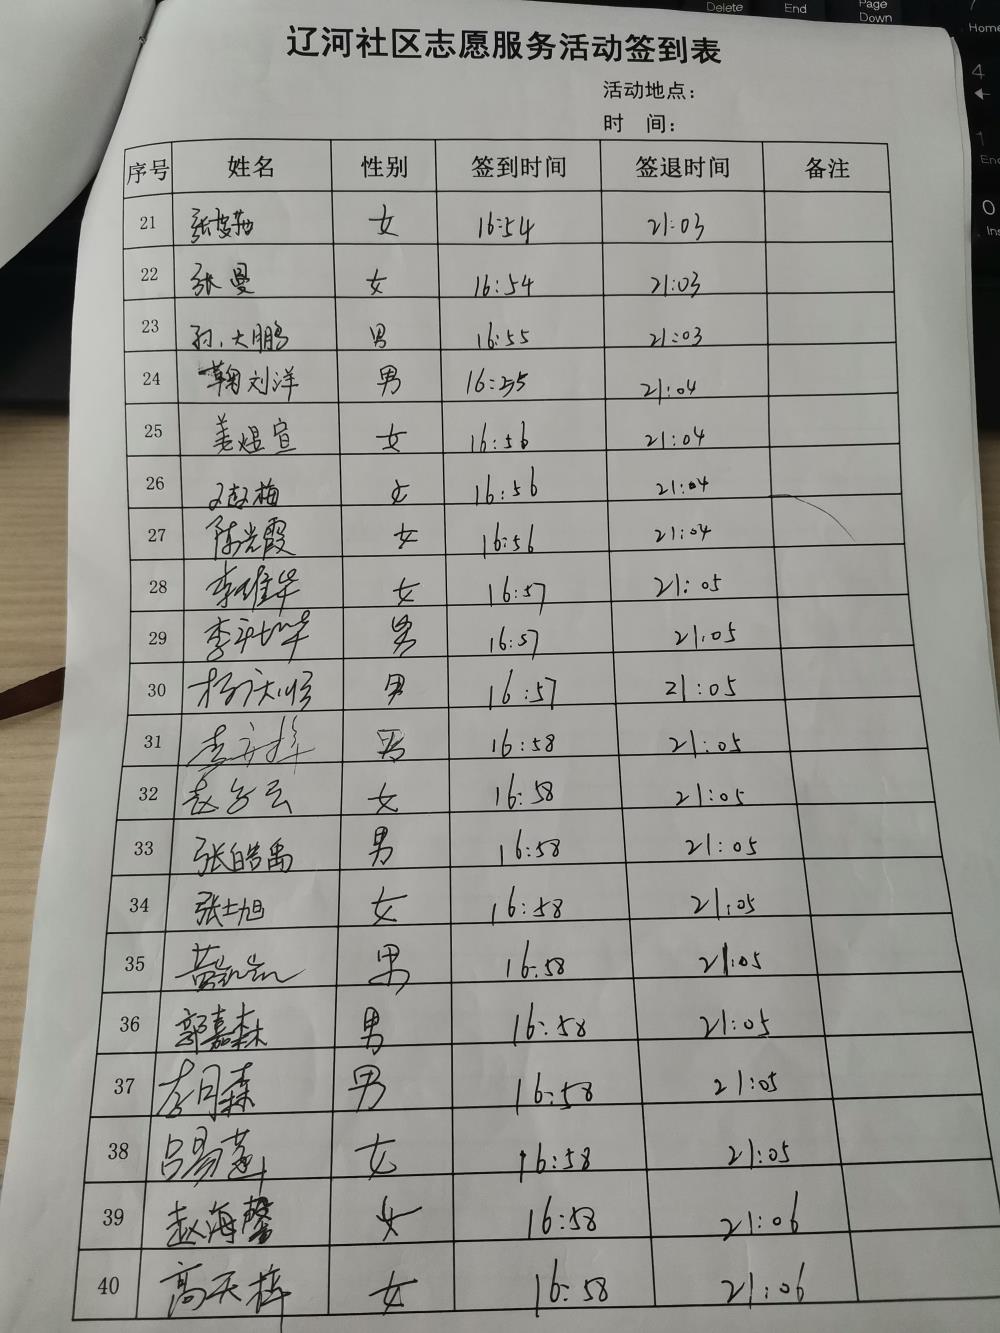 Delete End Page Down
Home
4
1
End
0
Ins
辽河社区志愿服务活动签到表
活动地点：
时 间：
序号 姓名 性别 签到时间 签退时间 备注
21 女 16:54 21:03
22 张曼 女 16:54 21:03
23 孙大鹏 男 16:55 21:03
24 鞠刘洋 男 16:55 21:04
25 姜煜宣 女 16:56 21:04
26 女 16:56 21:04
27 陈光霞 女 16:56 21:04
28 李维华 女 16:57 21:05
29 男 16:57 21:05
30 杨庆顺 男 16:57 21:05
31 男 16:58 21:05
32 女 16:58 21:05
33 张皓禹 男 16:58 21:05
34 张士旭 女 16:58 21:05
35 男 16:58 21:05
36 郭嘉森 男 16:58 21:05
37 男 16:58 21:05
38 女 16:58 21:05
39 赵海馨 女 16:58 21:06
40 女 16:58 21:06